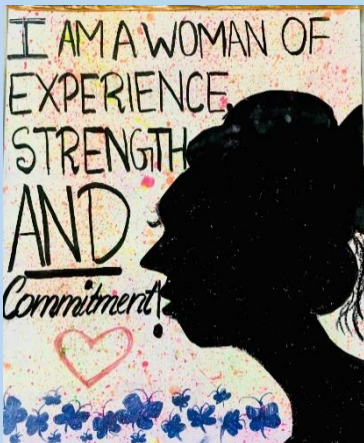 I AM A WOMAN OF
EXPERIENCE,
STRENGTH
AND
Commitment!